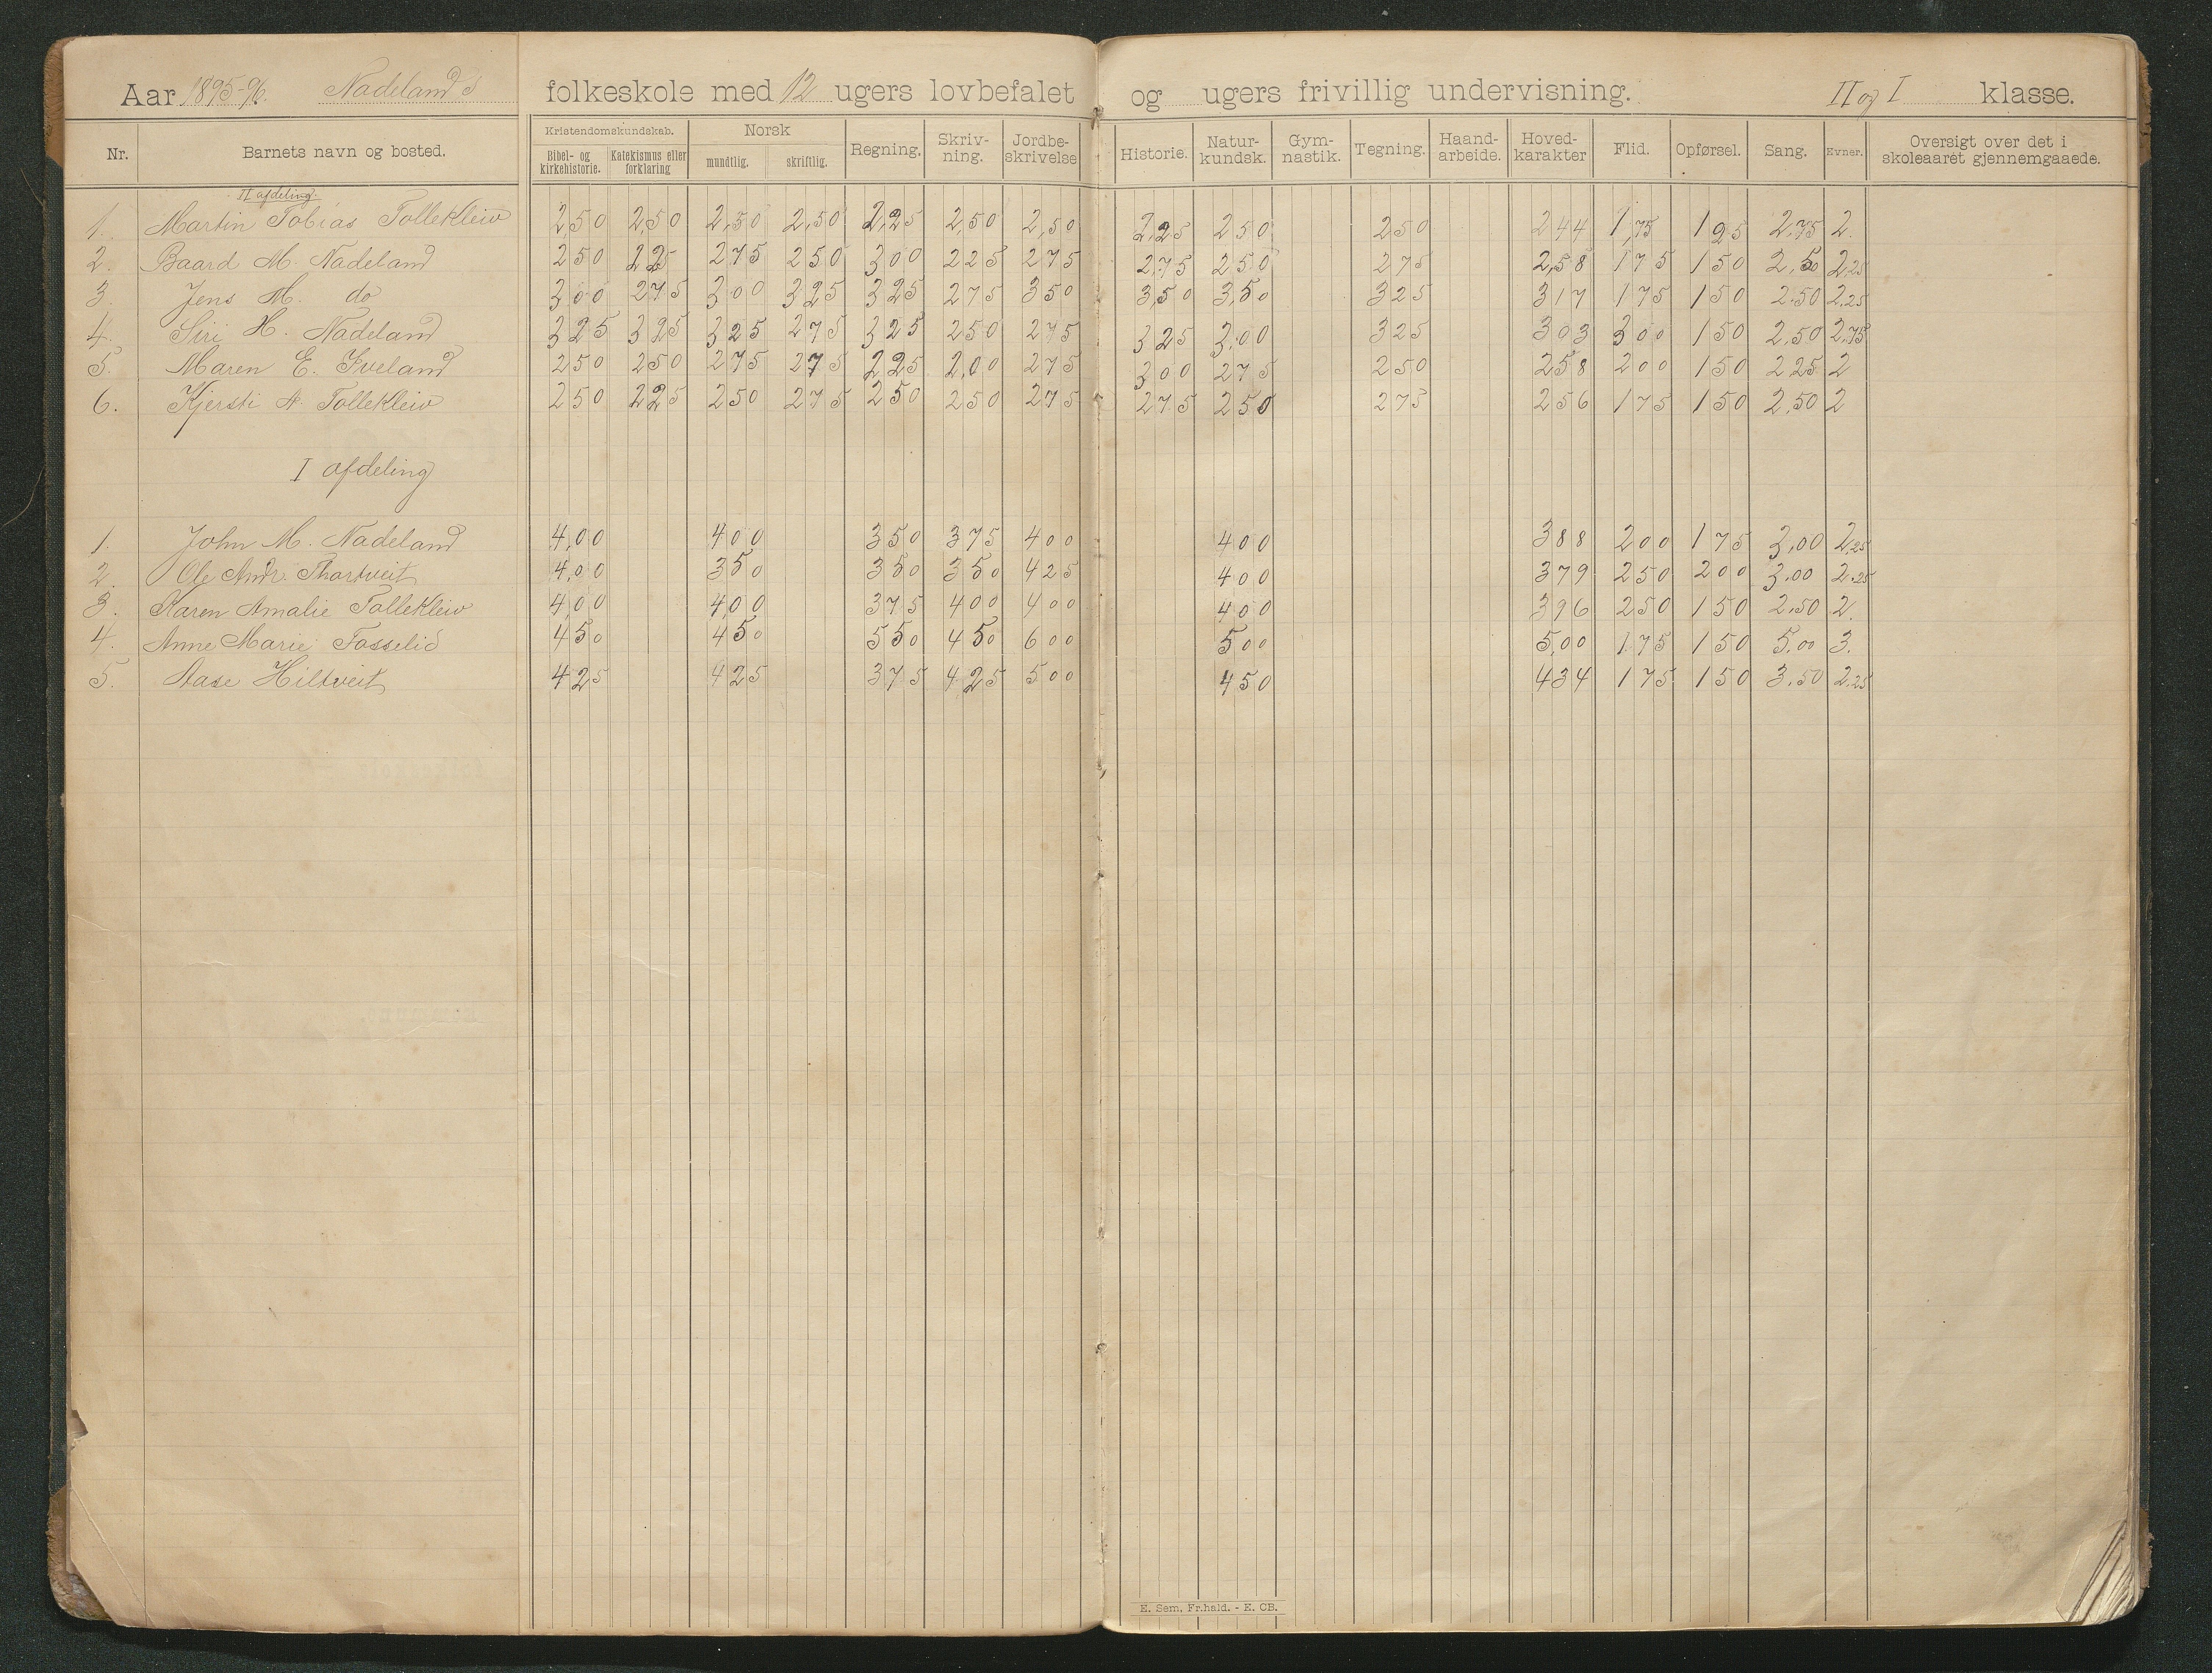 Aar 1895-96. Nadelands folkeskole med 12 ugers lovbefalet og ugers frivillig undervisning. II og I klasse.
Nr. Barnets navn og bosted. Kristendomskundskab. Bibel- og kirkehistorie. Katekismus eller forklaring Norsk mundtlig. skriftlig. Regning. Skriv-ning. Jordbe-skrivelse Historie. Natur-kundsk. Gym-nastik. Tegning. Haand-arbeide. Hoved-karakter Flid. Opførsel. Sang. Evner. Oversigt over det i skoleaaret gjennemgaaede.
II afdeling.
1. Martin Tobias Tollekleiv 250 2,50 2,50 2,50 2,25 2,50 2,50 2,25 250 250 244 1,75 125 2,75 2.
2. Baard M. Nadeland 250 225 275 250 300 225 275 2,75 250 275 2,58 175 150 2,50 2,25
3. Jens M. do 300 275 300 325 325 275 350 3,50 3,50 325 317 175 150 2.50 2.25
4. Siri H. Nadeland 325 325 325 275 325 250 275 325 3,00 325 303 300 150 2,50 2,75
5. Maren E. Iveland 250 250 275 275 225 2,00 275 300 275 250 258 200 150 225 2
6. Kjersti A. Tollekleiv 250 225 250 275 250 250 275 275 250 275 256 175 150 2,50 2
I afdeling
1. John M. Nadeland 4,00 400 350 375 400 400 388 200 175 3,00 2,25
2. Ole Andr. Thortveit 4,00 350 350 350 425 400 379 250 200 3.00 2.25
3. Karen Amalie Tollekleiv 4,00 4,00 375 400 400 400 396 250 150 2,50 2.
4. Anne Marie Fosselid 450 450 550 450 600 500 5,00 175 150 5,00 3.
5. Aase Hiltveit 425 425 375 425 500 450 434 175 150 3.50 2.25
E. Sem, Fr.hald. - E. CB.